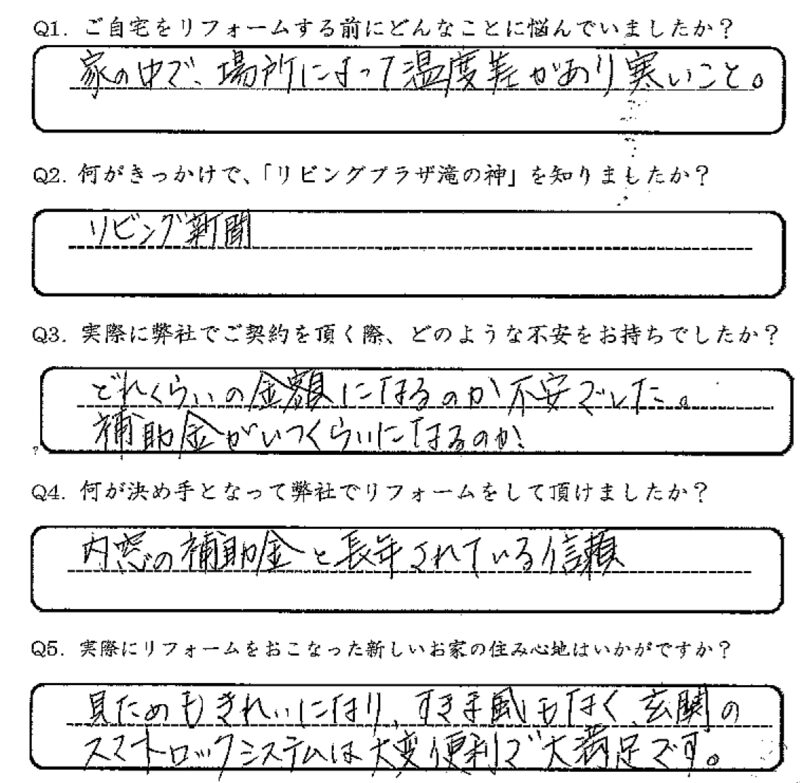 Q1. ご自宅をリフォームする前にどんなことに悩んでいましたか？
家の中で、場所によって温度差があり寒いこと。
Q2. 何がきっかけで、「リビングプラザ滝の神」を知りましたか？
リビング新聞
Q3. 実際に弊社でご契約を頂く際、どのような不安をお持ちでしたか？
どれくらいの金額になるのか不安でした。
補助金がいつくらいになるのか
Q4. 何が決め手となって弊社でリフォームをして頂けましたか？
内窓の補助金と長年されている信頼
Q5. 実際にリフォームをおこなった新しいお家の住み心地はいかがですか？
見ためもきれいになり、すきま風もなく、玄関の
スマートロックシステムは大変便利で大満足です。